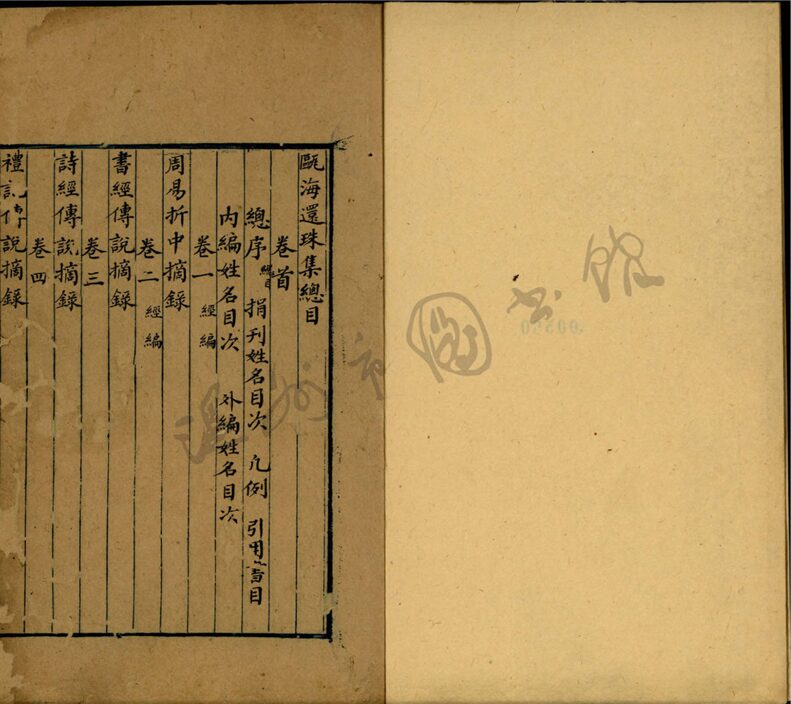 甌海還珠集總目
卷首
總序 總目 捐刊姓名目次 凡例 引用書目
內編姓名目次 外編姓名目次
卷一 經編
周易折中摘錄
卷二 經編
書經傳說摘錄
卷三
詩經傳說摘錄
卷四
禮記傳說摘錄
温州市圖书馆
02500